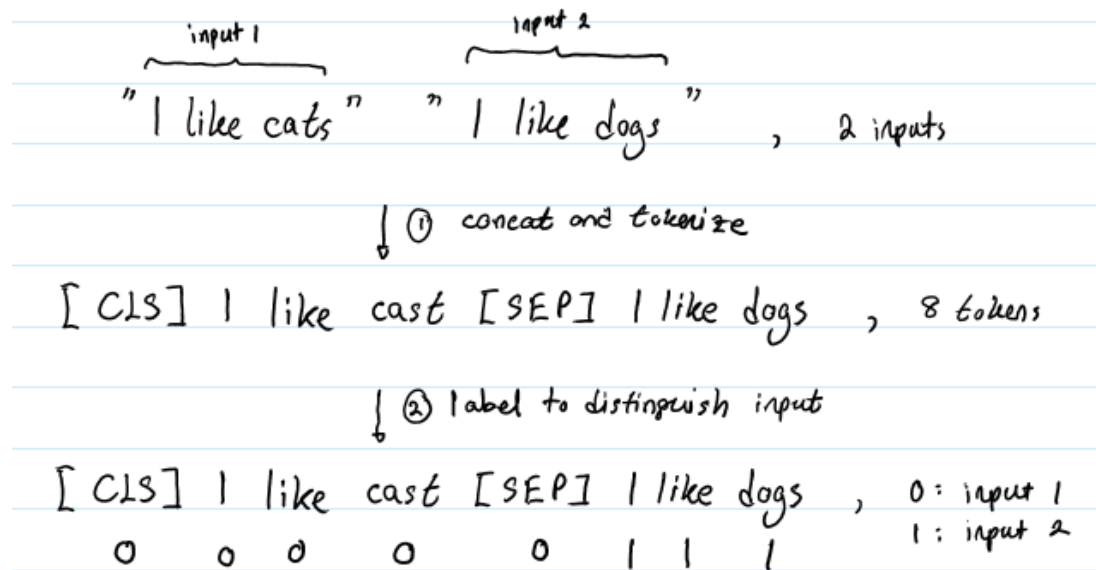 input 1 input 2
" I like cats " " I like dogs " , 2 inputs
① concat and tokenize
[CLS] I like cast [SEP] I like dogs , 8 tokens
② label to distinguish input
[CLS] I like cast [SEP] I like dogs , 0: input 1
1: input 2
0 0 0 0 0 1 1 1